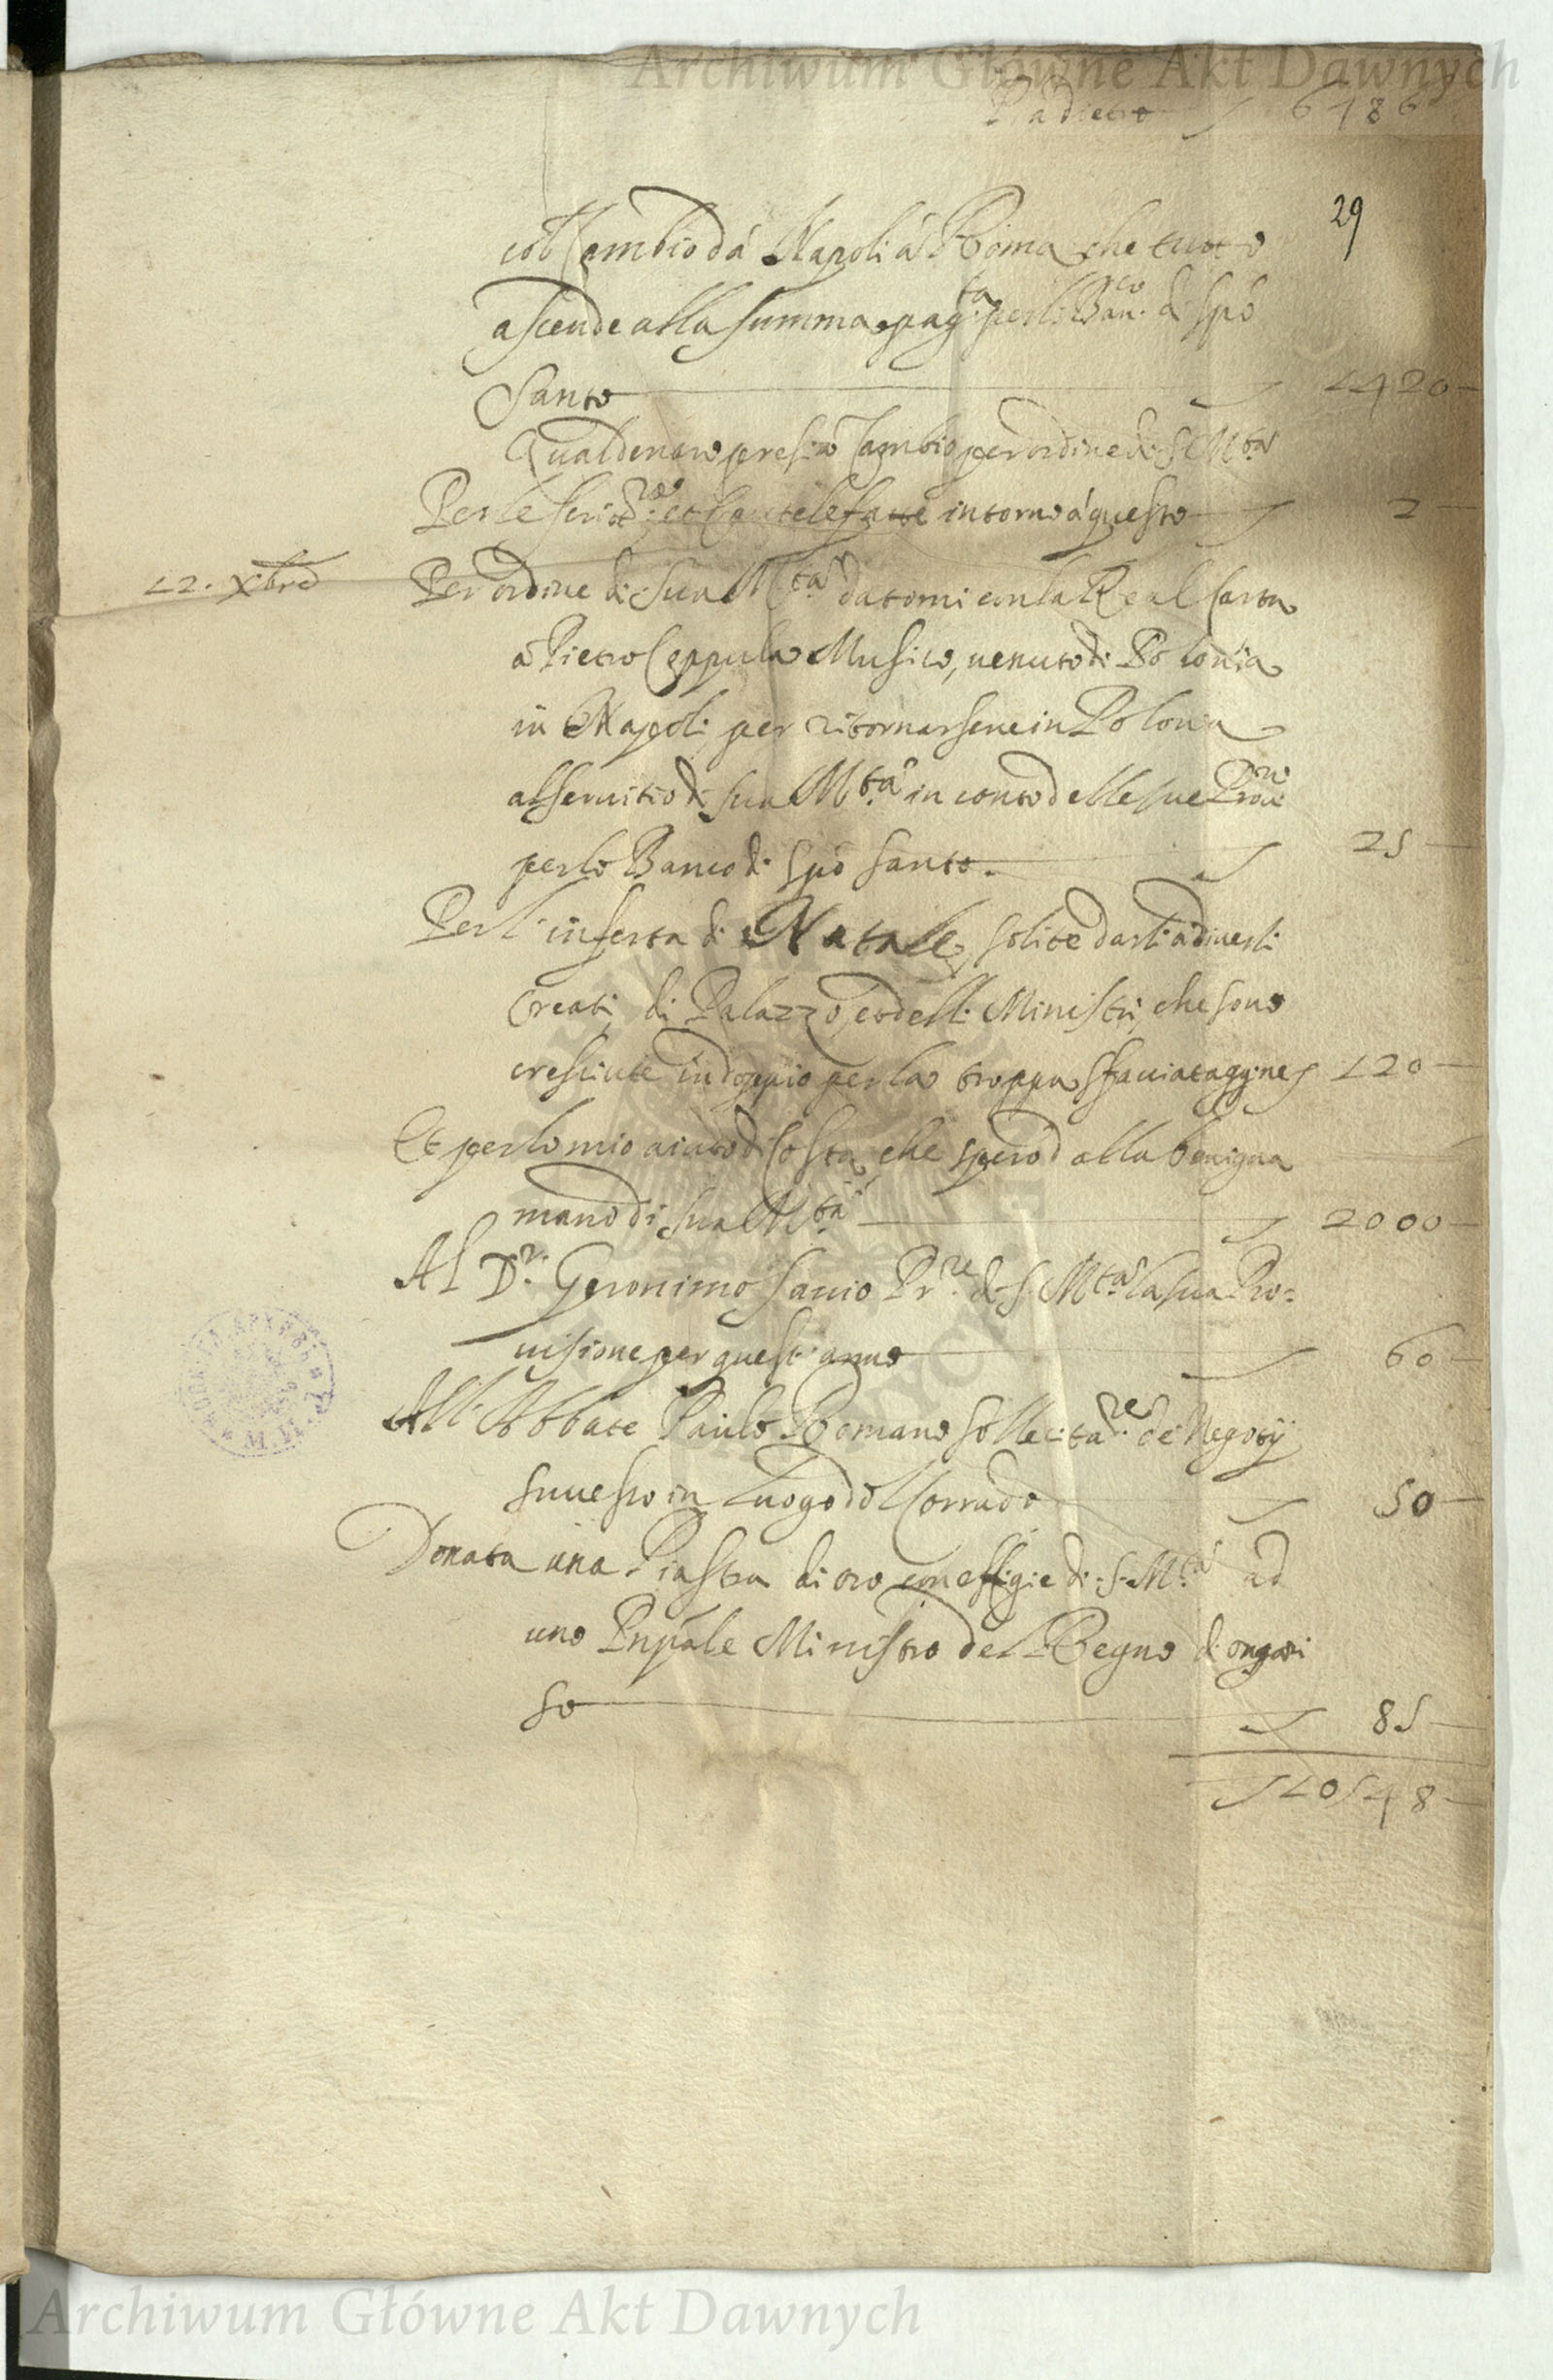 Archiwum Główne Akt Dawnych
P. a dietro 6786
29
col Cambio dà Napoli à Roma che tutto
ascende alla summa pag.ta per li Ban.co di Spo
Santo 1420
Qual denaro preso à Cambio per ordine di S. M.tà
Per le scritt.re et Cautele fatte intorno à questo 2
12. Xbre Per ordine di Sua M.tà datomi con la Real Carta
à Pietro Ceppula Musico, venuto di Polonia
in Napoli per ritornarsene in Polonia
al servitio di Sua M.tà in conto delle sue Prov.ni
per lo Banco di Spo Santo. 25
Per l'inferta di Natale, solite darsi à diversi
Creati di Palazzo, et delli Ministri, che sono
cresciute in doppio per la troppa sfacciatagyne 120
Et per lo mio aiuto di Costa che spero dalla benigna
mano di Sua M.tà 2000
Al D.r Geronimo Savio Pr.re di S. M.tà la sua Pro=
visione per questi anno 60
All' Abbate Paulo Romano sollecita.re de Negotij
successo in luogo del Corrado 50
Donata una Piastra di oro con effigie di S. M.tà ad
uno Pnpale Ministro del Regno di ongari
so 85
10548
Archiwum Główne Akt Dawnych